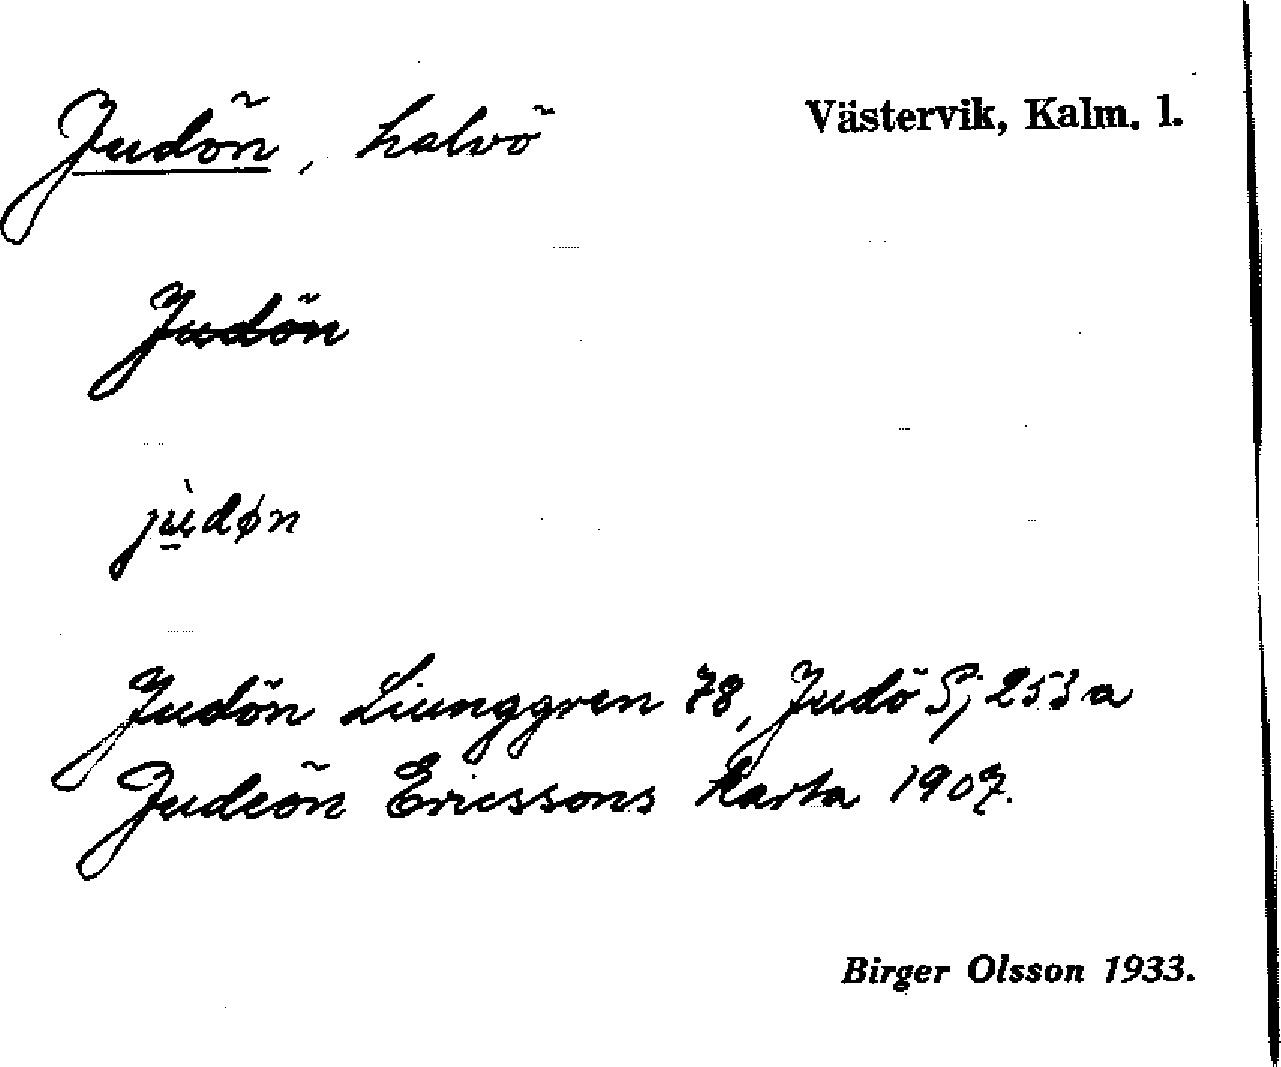 Judön, halvö
Västervik, Kalm. l.
Judön
jùdøn
Judön Liunggren 78, Judö S; 253 a
Judeön Ericssons Karta 1907.
Birger Olsson 1933.